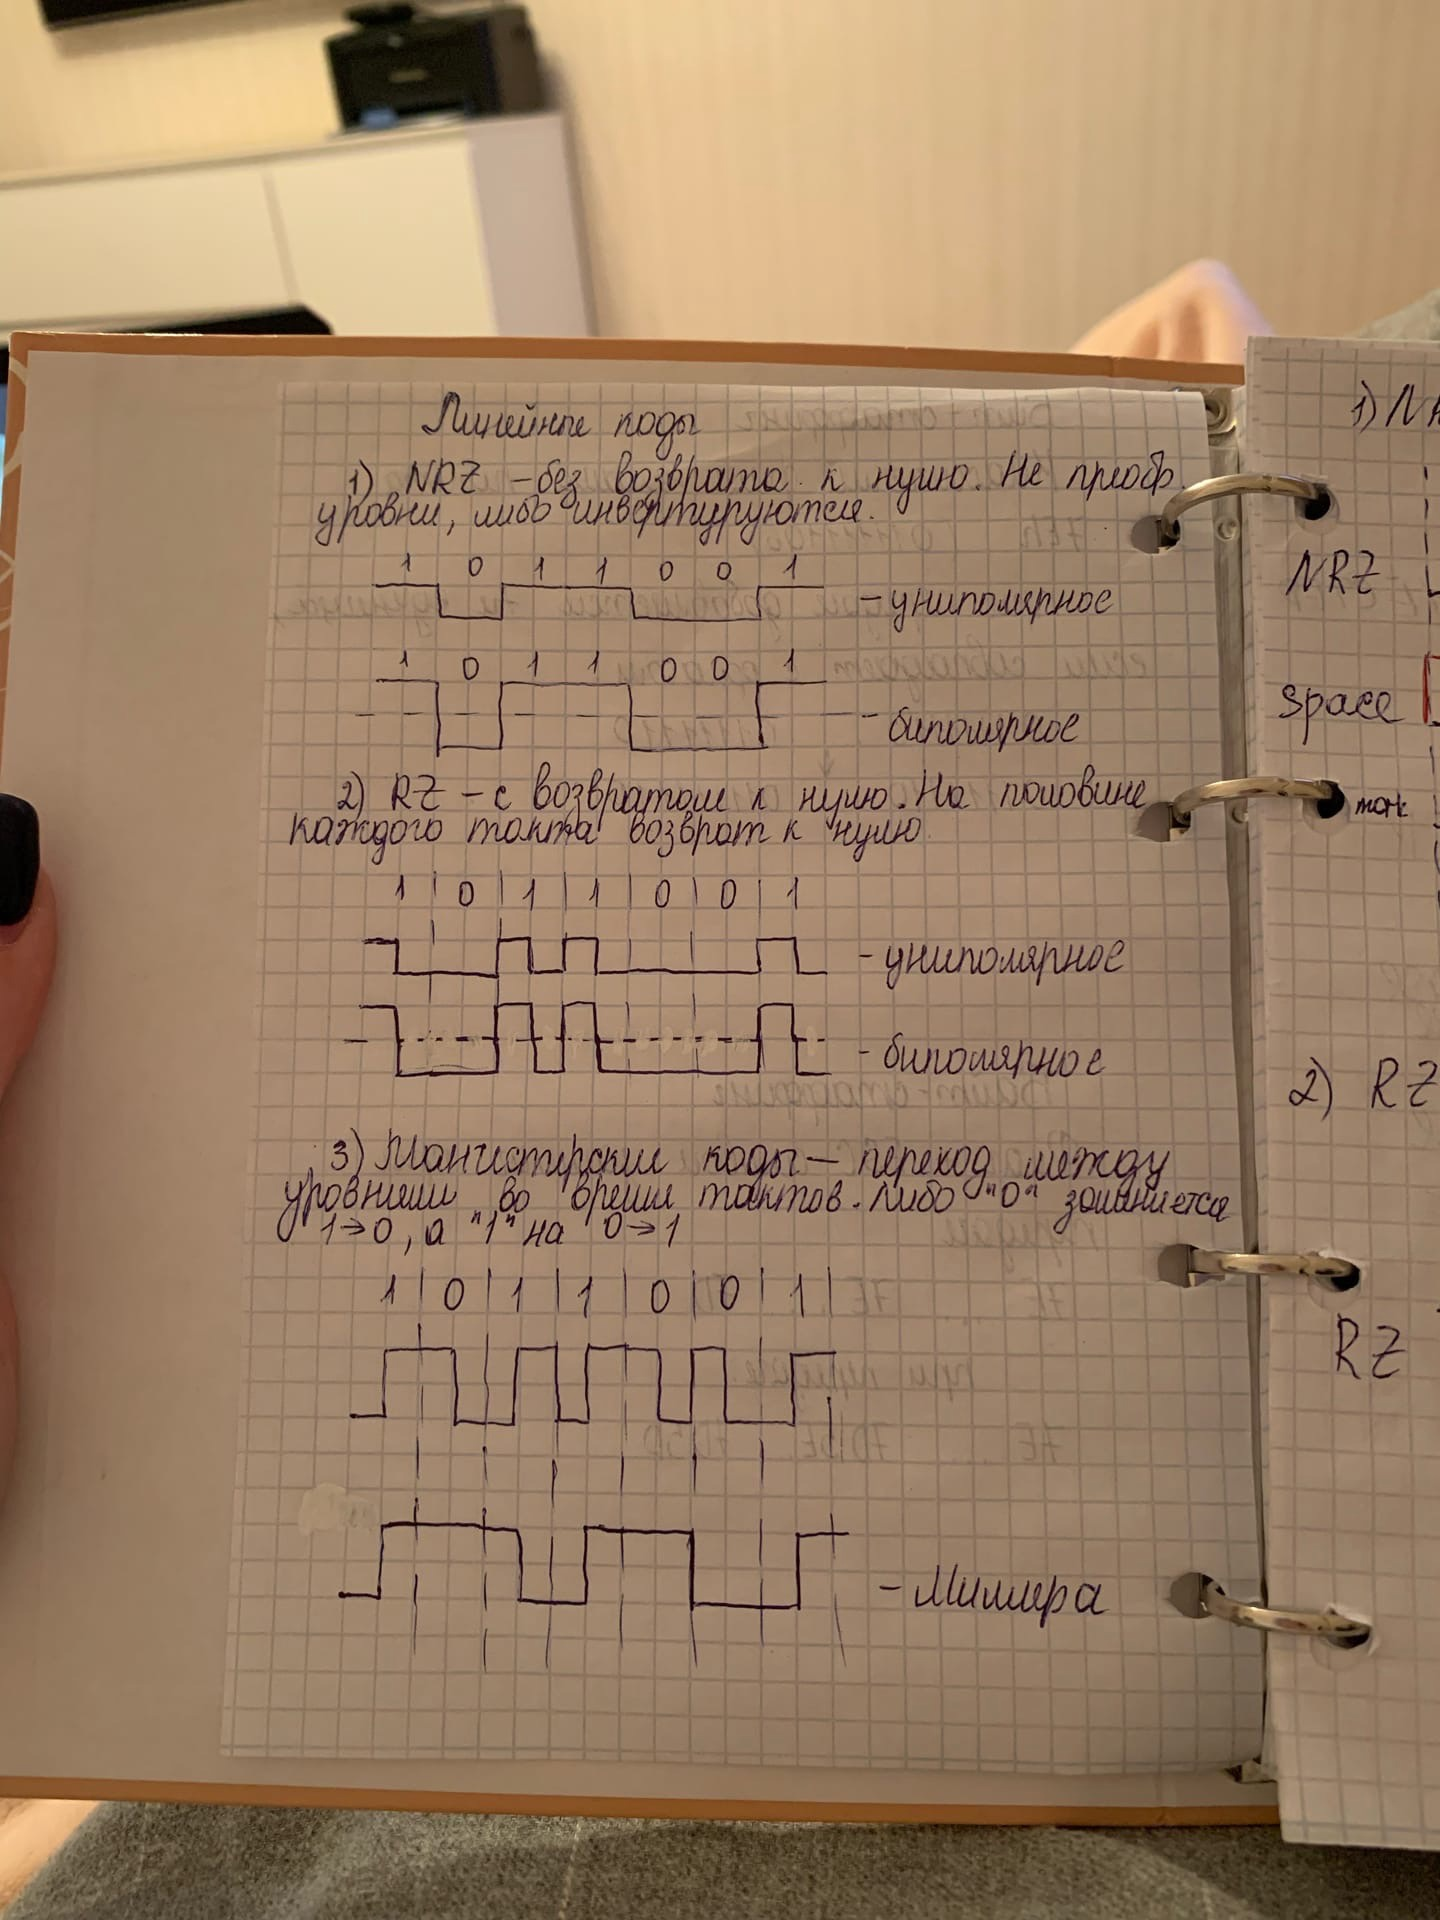 Линейные коды
1) NRZ – без возврата к нулю. Не преобр.
уровни, либо инвертируются.
1 0 1 1 0 0 1
– униполярное
1 0 1 1 0 0 1
– биполярное
2) RZ – с возвратом к нулю. На половине
каждого такта возврат к нулю
1 | 0 | 1 | 1 | 0 | 0 | 1
– униполярное
– биполярное
3) Манчистерские коды – переход между
уровнями во время тактов. Либо "0" заменяется
1→0, а "1" на 0→1
1 | 0 | 1 | 1 | 0 | 0 | 1 |
– Миллера
1) N
NRZ
space
mark
2) RZ
RZ